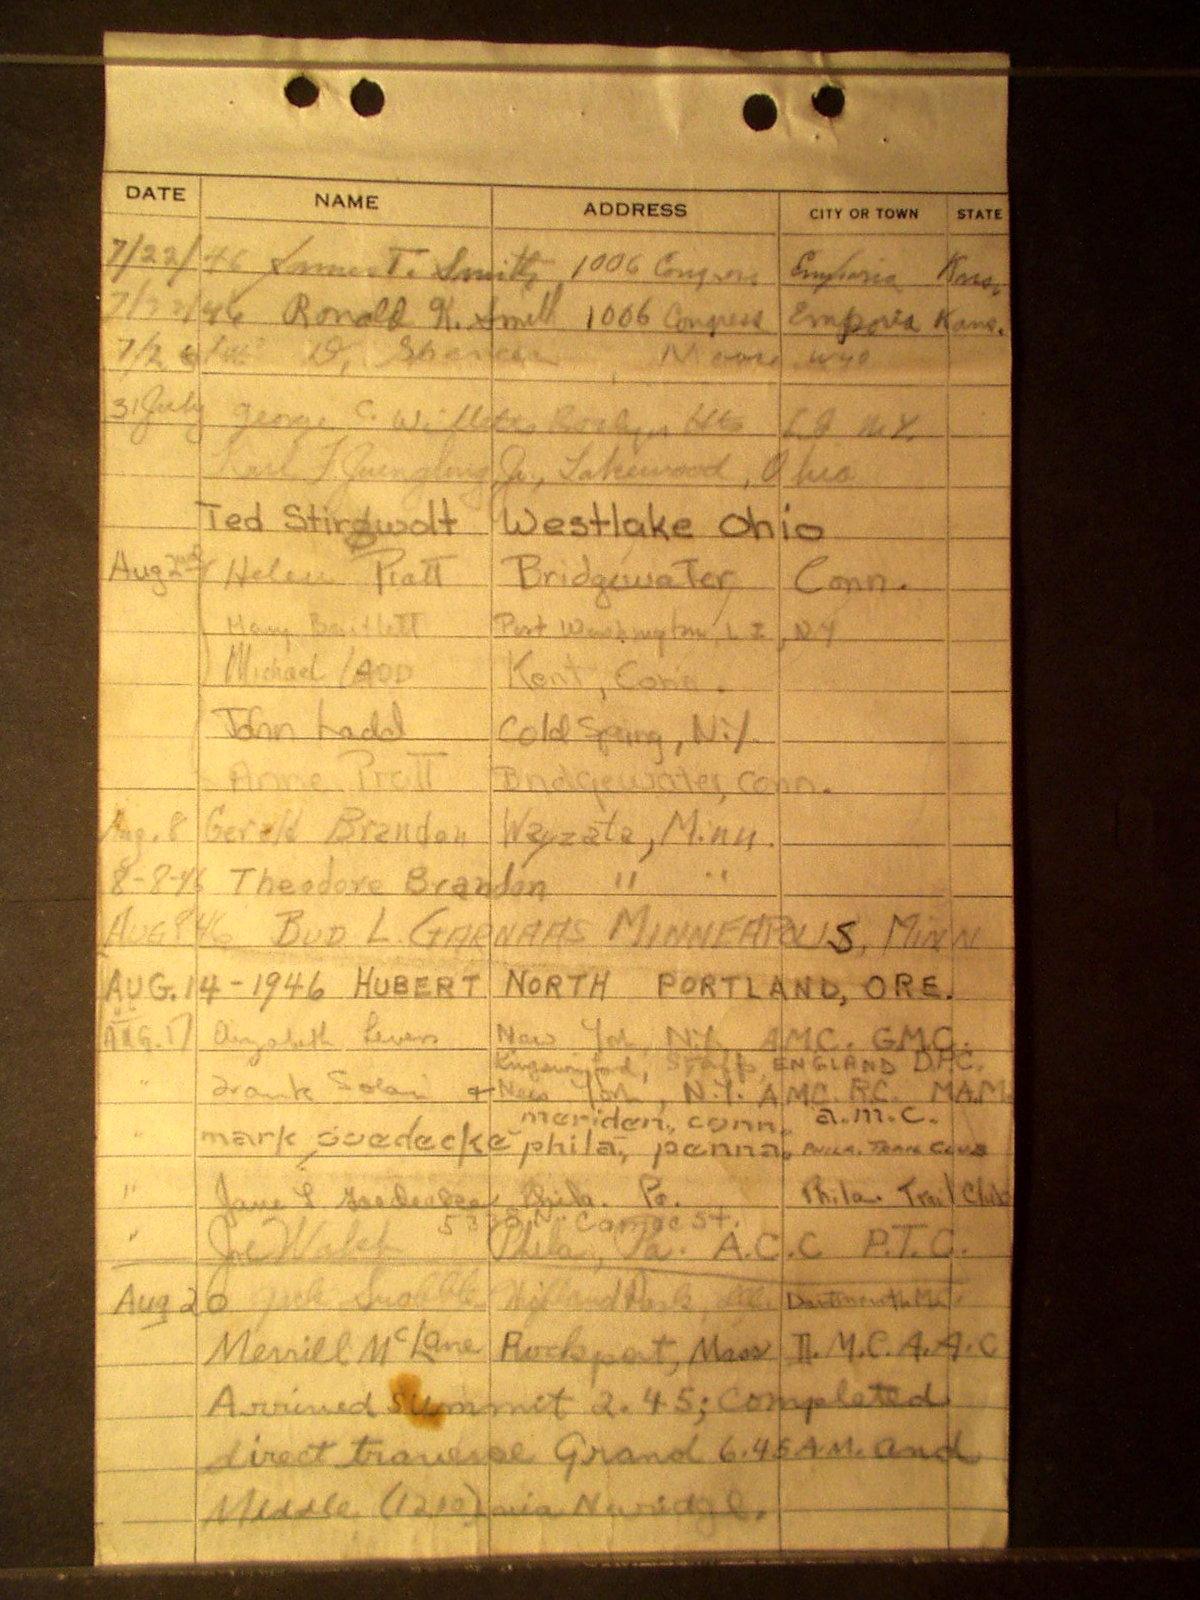 DATE NAME ADDRESS CITY OR TOWN STATE
7/22/46 T. Smith, 1006 Congress Emporia Kans.
7/22/46 Ronald K. Smith 1006 Congress Emporia Kans.
7/26/46 D. Spencer Moose Wyo
31 July George C. Willets Roslyn Hts L.I. N.Y.
Karl F Juengling Jr., Lakewood, Ohio
Ted Stirgwolt Westlake Ohio
Aug 2nd Helen Pratt Bridgewater Conn.
Mary Bartlett Port Washington, L I, N.Y
Michael Ladd Kent, Conn.
John Ladd Cold Spring, N.Y.
Anne Pratt Bridgewater, Conn.
Aug. 8 Gerald Brandon Wayzata, Minn.
8-8-46 Theodore Brandon " "
AUG 8 46 BUD L. GARNAAS MINNEAPOLIS, MINN
AUG. 14 - 1946 HUBERT NORTH PORTLAND, ORE.
AUG. 17 Elizabeth New York, N.Y. AMC. GMC.
ENGLAND D.P.C.
" Frank + New York, N.Y. AMC. RC. MAM.
meriden, conn. a.m.c.
" mark phila, penna. PHILA. TRAIL CLUB
" Jane Phila. Pa. Phila. Trail Club
N. Camac St.
" Joe Walsh Phila, Pa. A.C.C P.T.C.
Aug 20 Jack Highland Park, Ill. Dartmouth Mt.
Merrill McLane Rockport, Mass M.C. A.A.C
Arrived summit 2.45; Completed
direct traverse Grand 6.45 A.M. and
Middle (12:10) via N. ridge.